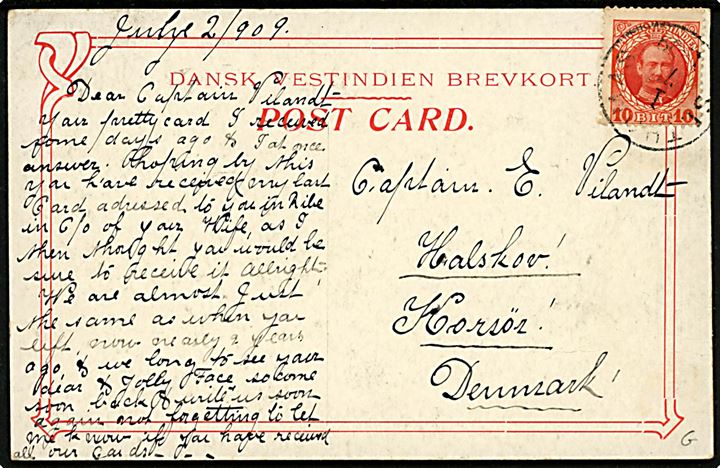 Julye 2/909.
DANSK VESTINDIEN BREVKORT.
POST CARD.
10 BIT. 10
Dear Captain Vilandt
your pretty card I received
some days ago & I at once
answer. Hoping by this
you have received my last
Card adressed to you in
in C/o of your Wife, as I
then thought you would be
sure to receive it allright
We are almost Just
the same as when you
left, now nearly 2 years
ago, & we long to see your
dear & Jolly Face, so come
soon back & write us soon
again not forgetting to let
me know if you have received
all our Cards
Captain. E. Vilandt
Halskov!
Korsör!
Denmark!
G